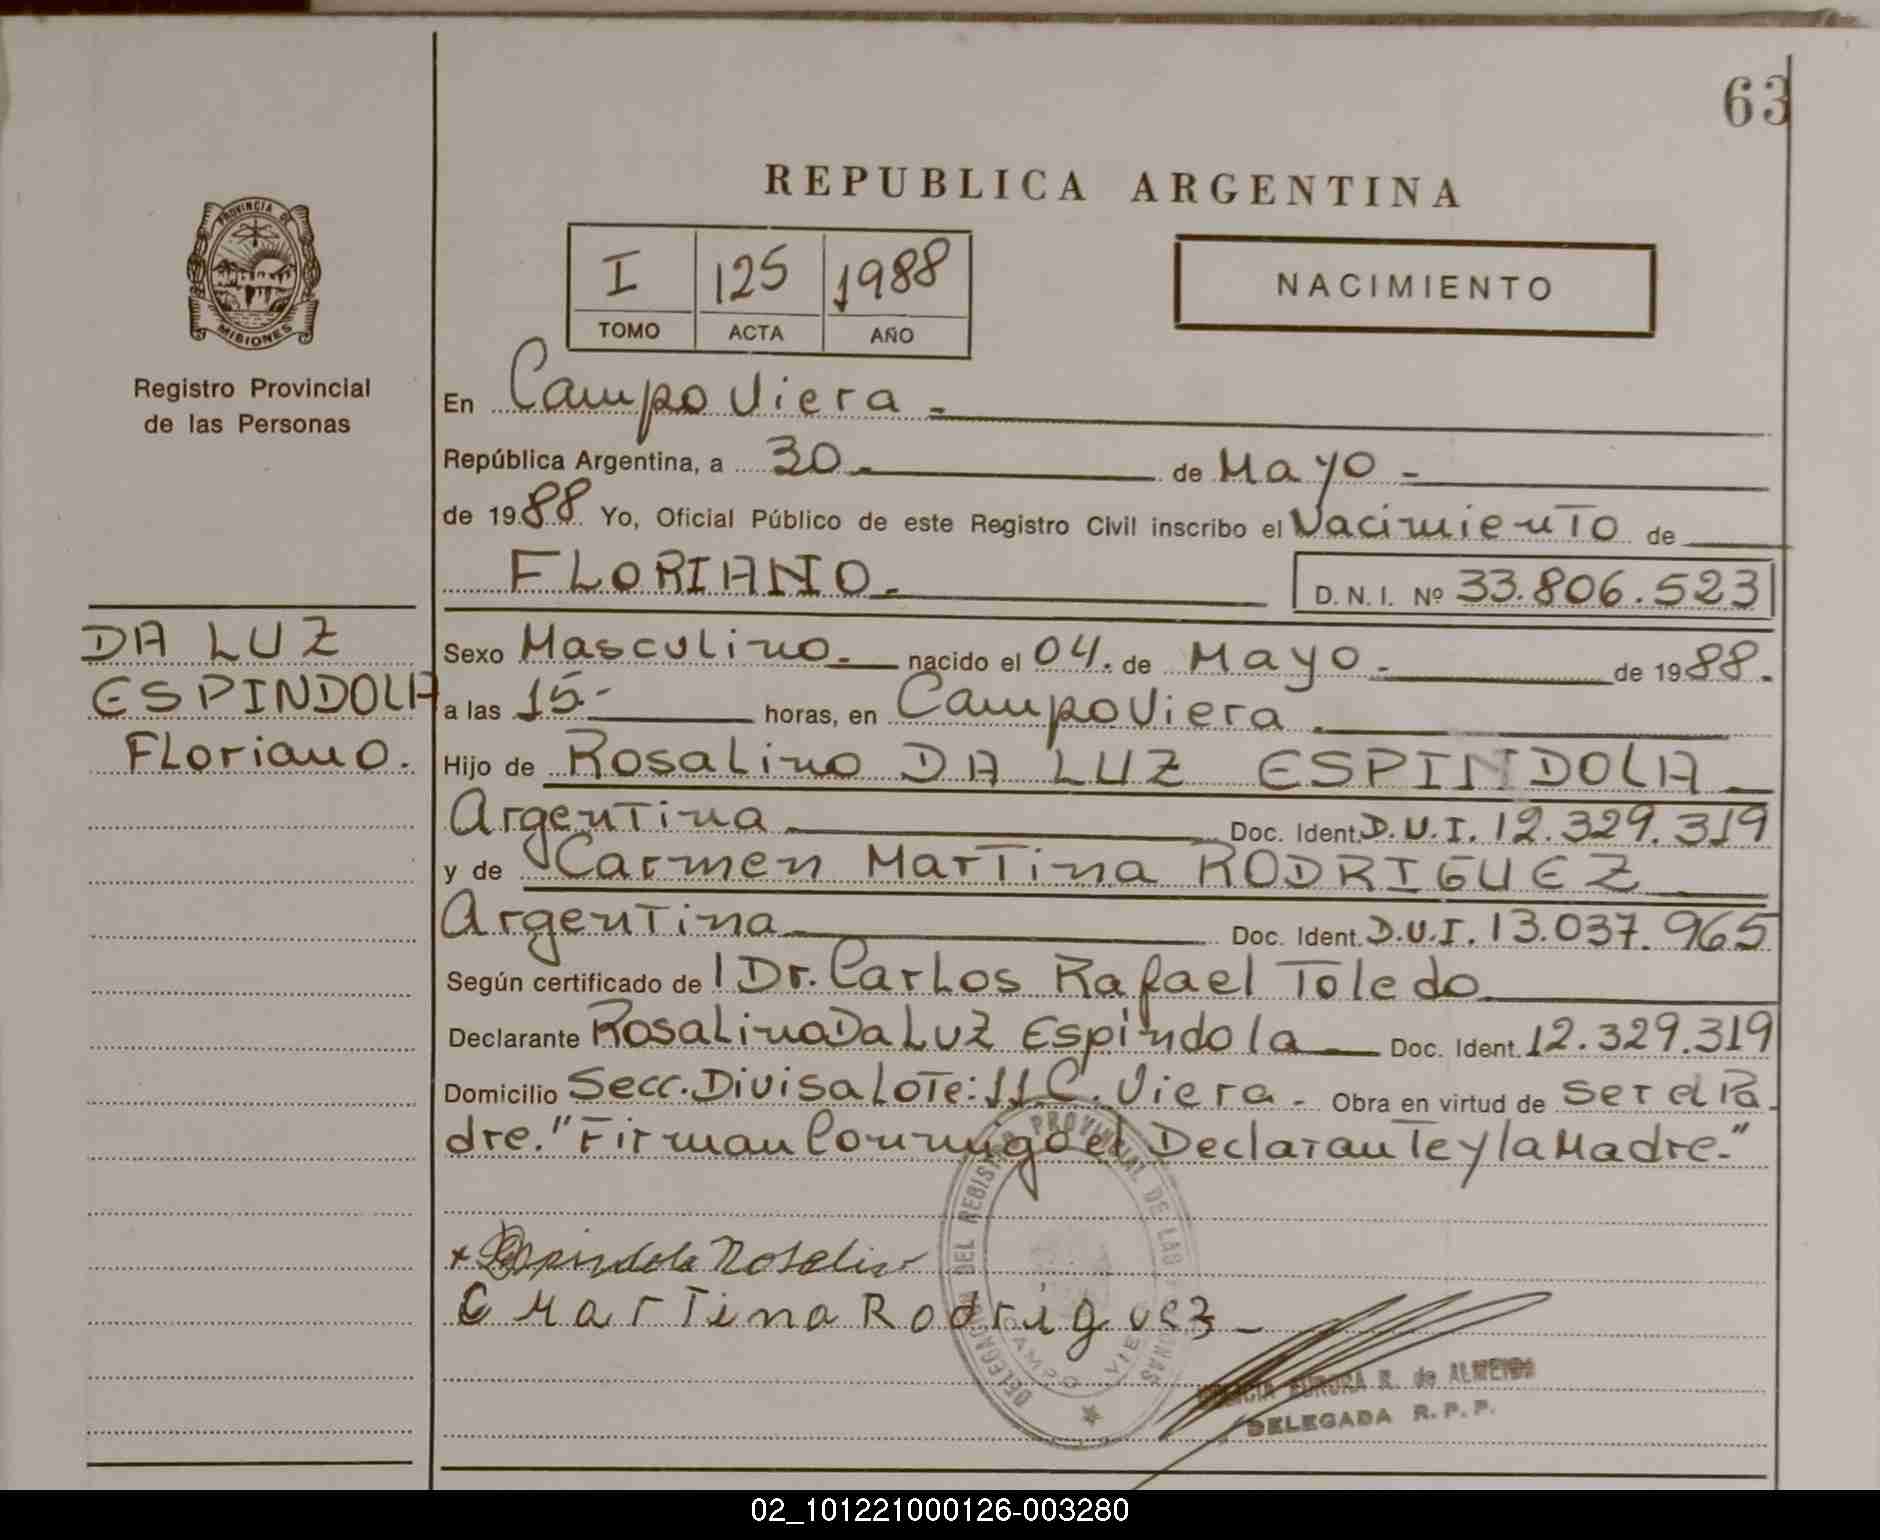 63
REPUBLICA ARGENTINA
PROVINCIA DE
MISIONES
Registro Provincial
de las Personas
I 125 1988
TOMO ACTA AÑO
NACIMIENTO
En Campo Viera -
República Argentina, a 30 - de Mayo -
de 1988 Yo, Oficial Público de este Registro Civil inscribo el Nacimiento de
FLORIANO. D. N. I. Nº 33.806.523
DA LUZ
ESPINDOLA
Floriano.
Sexo Masculino. nacido el 04. de Mayo - de 1988.
a las 15- horas, en Campo Viera
Hijo de Rosalino DA LUZ ESPINDOLA
Argentina Doc. Ident. D.N.I. 12.329.319
y de Carmen Martina RODRIGUEZ
Argentina Doc. Ident. D.N.I. 13.037.965
Según certificado de Dr. Carlos Rafael Toledo
Declarante Rosalino Da Luz Espindola Doc. Ident. 12.329.319
Domicilio Secc. Divisa Lote: 11 C. Viera - Obra en virtud de ser el Pa-
dre. "Firman Conmigo el Declarante y la Madre."
Espindola Rosalino
C Martina Rodriguez -
DELEGACION DEL REGISTRO PROVINCIAL DE LAS PERSONAS
CAMPO VIERA
AURORA R. de ALMEIDA
DELEGADA R.P.P.
02_101221000126-003280